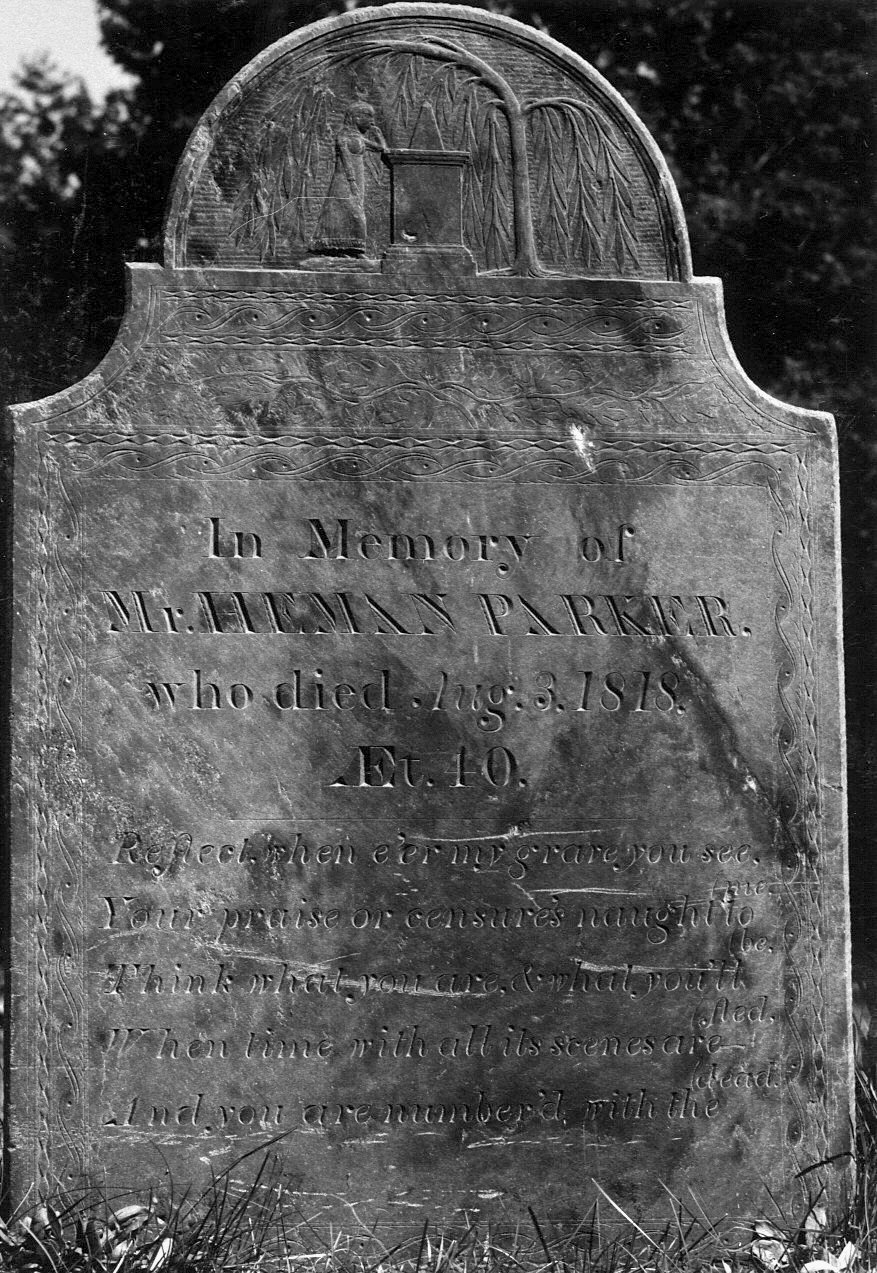 In Memory of
Mr. HEMAN PARKER.
who died Aug. 3. 1818.
Æt. 40.
Reflect, when e'er my grave you see,
Your praise or censure's naught to (me
Think what you are, & what you'll (be,
When time with all its scenes are (fled,
And you are number'd with the (dead.